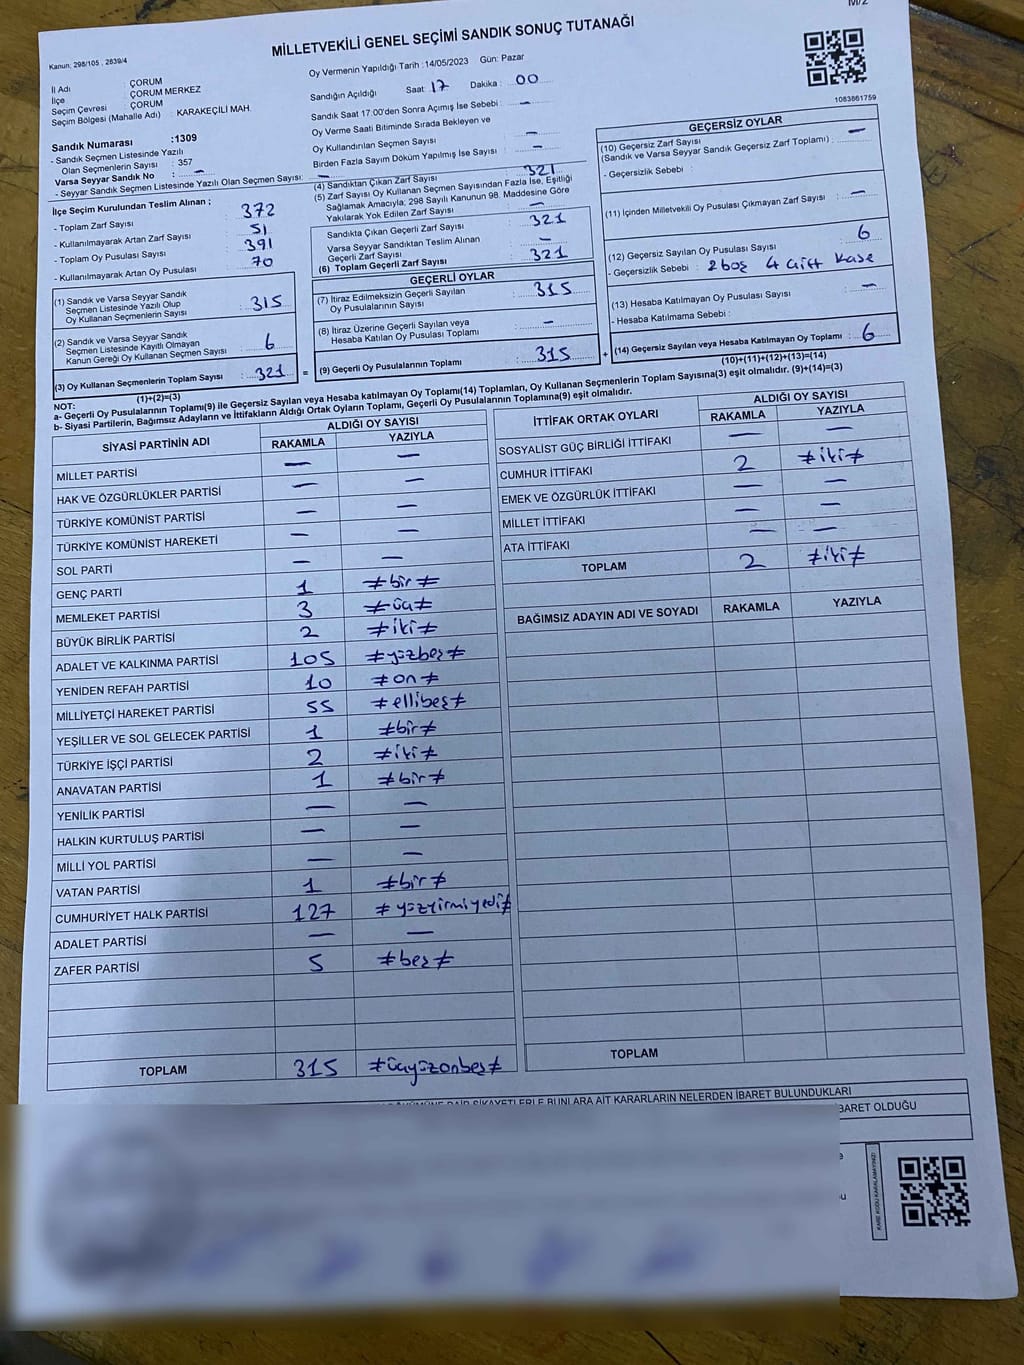 M/2
MİLLETVEKİLİ GENEL SEÇİMİ SANDIK SONUÇ TUTANAĞI
Kanun, 298/105 , 2839/4
İl Adı : ÇORUM
İlçe : ÇORUM MERKEZ
Seçim Çevresi : ÇORUM
Seçim Bölgesi (Mahalle Adı) : KARAKEÇİLİ MAH.
Sandık Numarası :1309
- Sandık Seçmen Listesinde Yazılı
Olan Seçmenlerin Sayısı : 357
Varsa Seyyar Sandık No : —
- Seyyar Sandık Seçmen Listesinde Yazılı Olan Seçmen Sayısı: —
Oy Vermenin Yapıldığı Tarih :14/05/2023 Gün: Pazar
Sandığın Açıldığı Saat 17 Dakika : 00
Sandık Saat 17:00'den Sonra Açımış İse Sebebi : —
Oy Verme Saati Bitiminde Sırada Bekleyen ve
Oy Kullandırılan Seçmen Sayısı : —
Birden Fazla Sayım Döküm Yapılmış İse Sayısı : —
1083861759
İlçe Seçim Kurulundan Teslim Alınan ;
- Toplam Zarf Sayısı : 372
- Kullanılmayarak Artan Zarf Sayısı : 51
- Toplam Oy Pusulası Sayısı : 391
- Kullanılmayarak Artan Oy Pusulası : 70
(1) Sandık ve Varsa Seyyar Sandık
Seçmen Listesinde Yazılı Olup
Oy Kullanan Seçmenlerin Sayısı : 315
(2) Sandık ve Varsa Seyyar Sandık
Seçmen Listesinde Kayıtlı Olmayan
Kanun Gereği Oy Kullanan Seçmen Sayısı : 6
(3) Oy Kullanan Seçmenlerin Toplam Sayısı : 321
(1)+(2)=(3)
(4) Sandıktan Çıkan Zarf Sayısı : 321
(5) Zarf Sayısı Oy Kullanan Seçmen Sayısından Fazla İse, Eşitliği
Sağlamak Amacıyla, 298 Sayılı Kanunun 98. Maddesine Göre
Yakılarak Yok Edilen Zarf Sayısı : —
Sandıkta Çıkan Geçerli Zarf Sayısı : 321
Varsa Seyyar Sandıktan Teslim Alınan
Geçerli Zarf Sayısı : —
(6) Toplam Geçerli Zarf Sayısı : 321
=
GEÇERLİ OYLAR
(7) İtiraz Edilmeksizin Geçerli Sayılan
Oy Pusulalarının Sayısı : 315
(8) İtiraz Üzerine Geçerli Sayılan veya
Hesaba Katılan Oy Pusulası Toplamı : —
(9) Geçerli Oy Pusulalarının Toplamı : 315
+
GEÇERSİZ OYLAR
(10) Geçersiz Zarf Sayısı
(Sandık ve Varsa Seyyar Sandık Geçersiz Zarf Toplamı) : —
- Geçersizlik Sebebi :
(11) İçinden Milletvekili Oy Pusulası Çıkmayan Zarf Sayısı : —
(12) Geçersiz Sayılan Oy Pusulası Sayısı : 6
- Geçersizlik Sebebi : 2 boş 4 Çift Kase
(13) Hesaba Katılmayan Oy Pusulası Sayısı : —
- Hesaba Katılmama Sebebi :
(14) Geçersiz Sayılan veya Hesaba Katılmayan Oy Toplamı : 6
(10)+(11)+(12)+(13)=(14)
NOT:
a- Geçerli Oy Pusulalarının Toplamı(9) ile Geçersiz Sayılan veya Hesaba katılmayan Oy Toplamı(14) Toplamları, Oy Kullanan Seçmenlerin Toplam Sayısına(3) eşit olmalıdır. (9)+(14)=(3)
b- Siyasi Partilerin, Bağımsız Adayların ve İttifakların Aldığı Ortak Oyların Toplamı, Geçerli Oy Pusulalarının Toplamına(9) eşit olmalıdır.
SİYASİ PARTİNİN ADI ALDIĞI OY SAYISI
RAKAMLA YAZIYLA
MİLLET PARTİSİ — —
HAK VE ÖZGÜRLÜKLER PARTİSİ — —
TÜRKİYE KOMÜNİST PARTİSİ — —
TÜRKİYE KOMÜNİST HAREKETİ — —
SOL PARTİ — —
GENÇ PARTİ 1 ≠bir≠
MEMLEKET PARTİSİ 3 ≠üç≠
BÜYÜK BİRLİK PARTİSİ 2 ≠iki≠
ADALET VE KALKINMA PARTİSİ 105 ≠yüzbeş≠
YENİDEN REFAH PARTİSİ 10 ≠on≠
MİLLİYETÇİ HAREKET PARTİSİ 55 ≠ellibeş≠
YEŞİLLER VE SOL GELECEK PARTİSİ 1 ≠bir≠
TÜRKİYE İŞÇİ PARTİSİ 2 ≠iki≠
ANAVATAN PARTİSİ 1 ≠bir≠
YENİLİK PARTİSİ — —
HALKIN KURTULUŞ PARTİSİ — —
MİLLİ YOL PARTİSİ — —
VATAN PARTİSİ 1 ≠bir≠
CUMHURİYET HALK PARTİSİ 127 ≠yüzyirmiyedi≠
ADALET PARTİSİ — —
ZAFER PARTİSİ 5 ≠beş≠
TOPLAM 315 ≠üçyüzonbeş≠
İTTİFAK ORTAK OYLARI ALDIĞI OY SAYISI
RAKAMLA YAZIYLA
SOSYALİST GÜÇ BİRLİĞİ İTTİFAKI — —
CUMHUR İTTİFAKI 2 ≠iki≠
EMEK VE ÖZGÜRLÜK İTTİFAKI — —
MİLLET İTTİFAKI — —
ATA İTTİFAKI — —
TOPLAM 2 ≠iki≠
BAĞIMSIZ ADAYIN ADI VE SOYADI RAKAMLA YAZIYLA
TOPLAM
DAİR ŞİKAYETLERLE BUNLARA AİT KARARLARIN NELERDEN İBARET BULUNDUKLARI
BARET OLDUĞU
KARE KODU KARALAMAYINIZ!